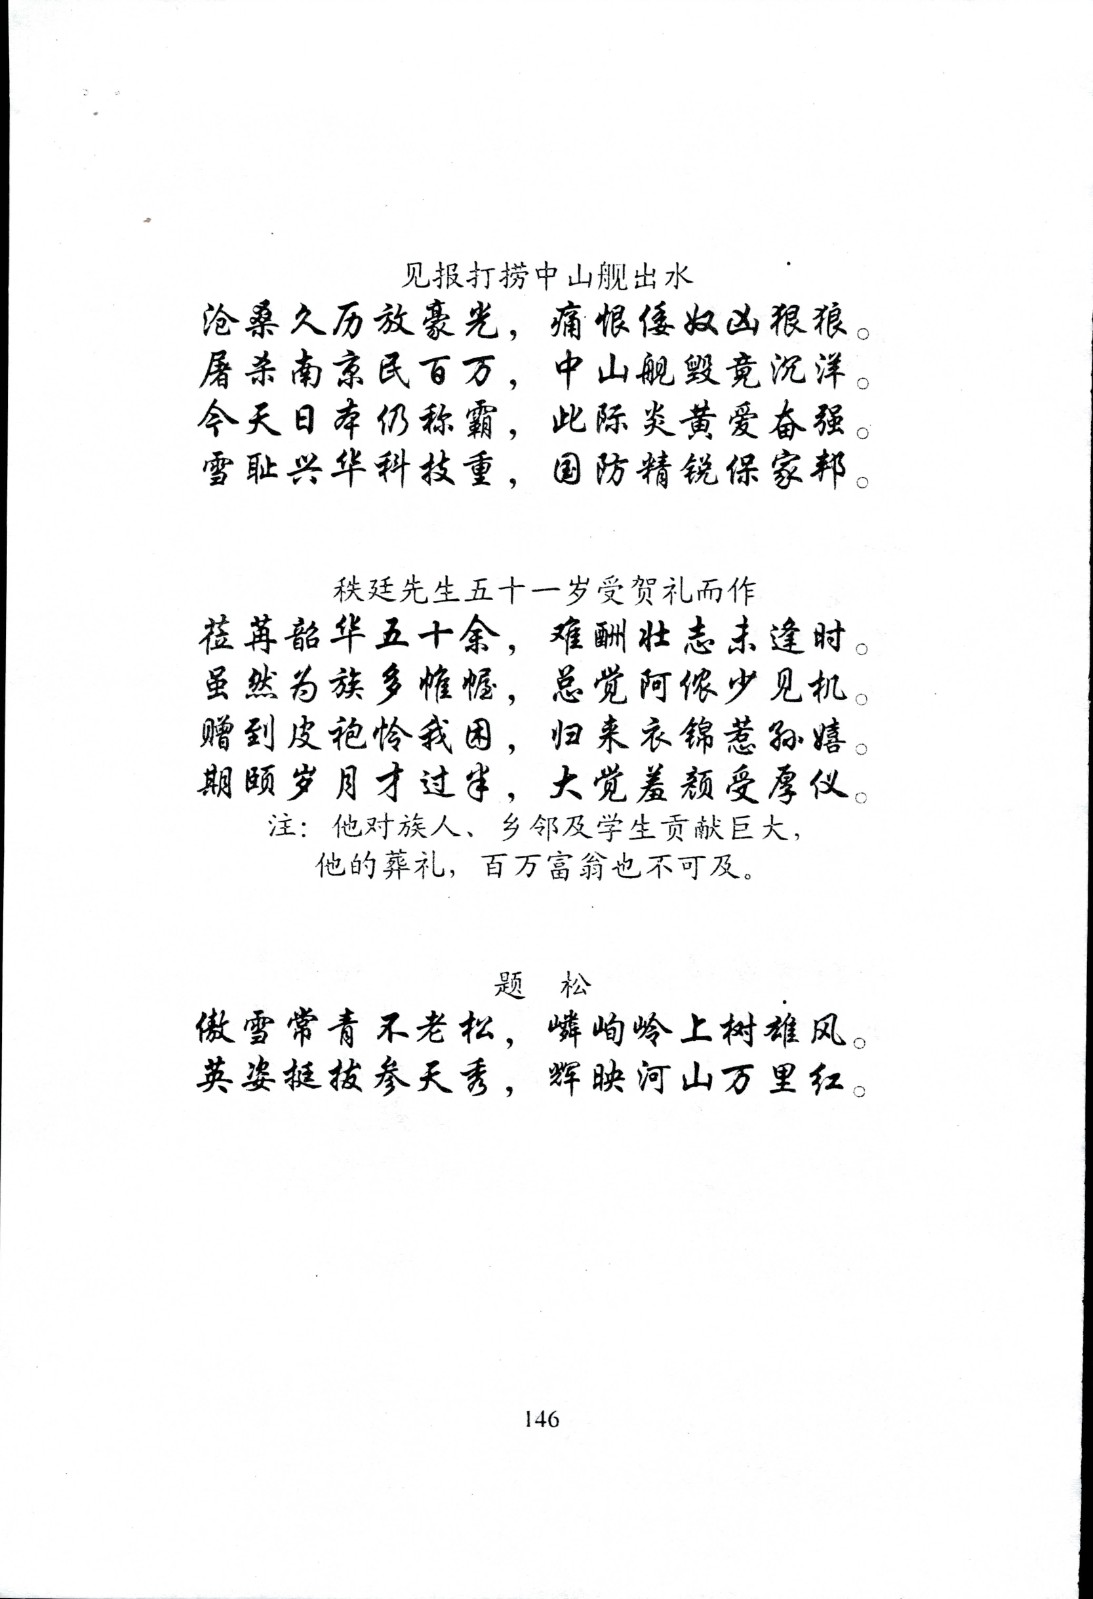 见报打捞中山舰出水
沧桑久历放豪光，痛恨倭奴凶狠狼。
屠杀南京民百万，中山舰毁竟沉洋。
今天日本仍称霸，此际炎黄爱奋强。
雪耻兴华科技重，国防精锐保家邦。
秩廷先生五十一岁受贺礼而作
荏苒韶华五十余，难酬壮志未逢时。
虽然为族多帷幄，总觉阿侬少见机。
赠到皮袍怜我困，归来衣锦惹孙嬉。
期颐岁月才过半，大觉羞颜受厚仪。
注：他对族人、乡邻及学生贡献巨大，
他的葬礼，百万富翁也不可及。
题 松
傲雪常青不老松，嶙峋岭上树雄风。
英姿挺拔参天秀，辉映河山万里红。
146